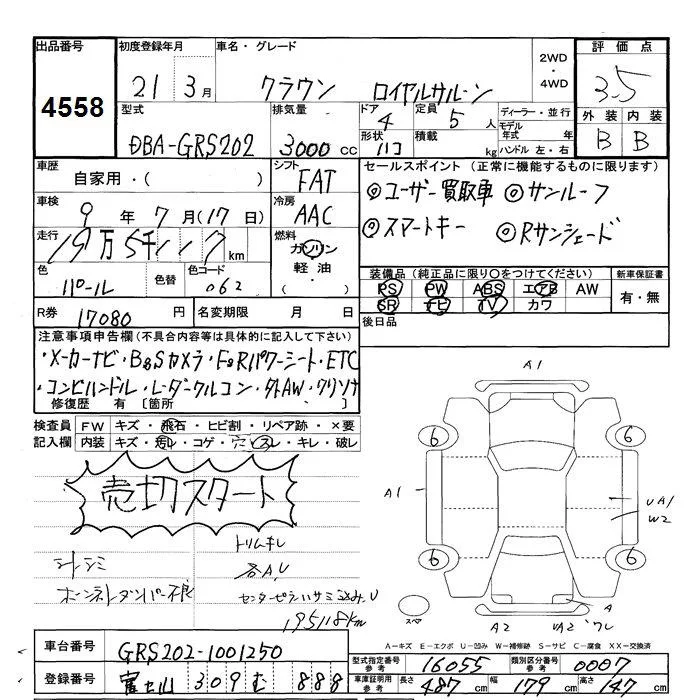 出品番号 初度登録年月 車名・グレード 2WD・4WD 評価点
4558 21年3月 クラウン ロイヤルサルーン 3.5
型式 排気量 ドア 定員 ディーラー・並行 外装 内装
DBA-GRS202 3000cc 4 5人 モデル年式 年 B B
形状 ハコ 積載 kg ハンドル 左・右
車歴 シフト セールスポイント(正常に機能するものに限ります)
自家用・( ) FAT ◎ユーザー買取車 ◎サンルーフ
車検 冷房 ◎スマートキー ◎Rサンシェード
9年7月(17日) AAC
走行 燃料
19万5千117km ガソリン
色 色替 色コード 軽油・
パール 062 ( )
装備品(純正品に限り○をつけてください) 新車保証書
PS PW ABS エアB AW 有・無
SR ナビ TV カワ
R券 17080円 名変期限 月 日 後日品
注意事項申告欄(不具合内容等は具体的に記入して下さい)
・メーカーナビ・B&Sカメラ・F&Rパワーシート・ETC
・コンビハンドル・レーダークルコン・外AW・クリソナ
修復歴 有 [箇所 ]
検査員 FW キズ・飛石・ヒビ割・リペア跡・×要
記入欄 内装 キズ・汚レ・コゲ・穴・スレ・キレ・破レ
売切スタート
トリムキレ
シートシミ 各A,U
ボンネットダンパー不良
195118km
A1
6 6
A1 UA1
W2
6 6
A
スペア A2
A=キズ E=エクボ U=凹み W=補修跡 S=サビ C=腐食 XX=交換済
車台番号 GRS202-1001250
型式指定番号 参考 16055 類別区分番号 参考 0007
登録番号 309 む 888
車庫証明用 参考 長さ 487cm 幅 179cm 高さ 147cm